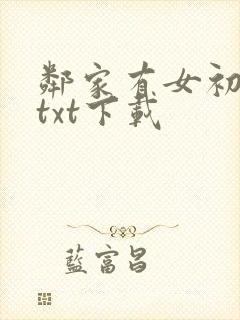 鄰家有女初
txt下載
藍富昌